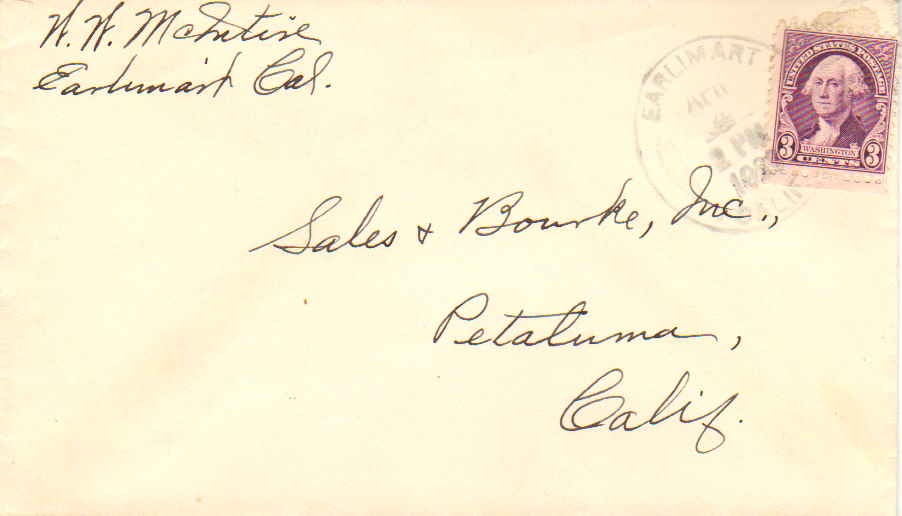 W. W. McIntire
Earlimart Cal.
EARLIMART
2 PM
UNITED STATES POSTAGE
WASHINGTON
3 CENTS 3
Sales & Bourke, Inc.,
Petaluma,
Calif.